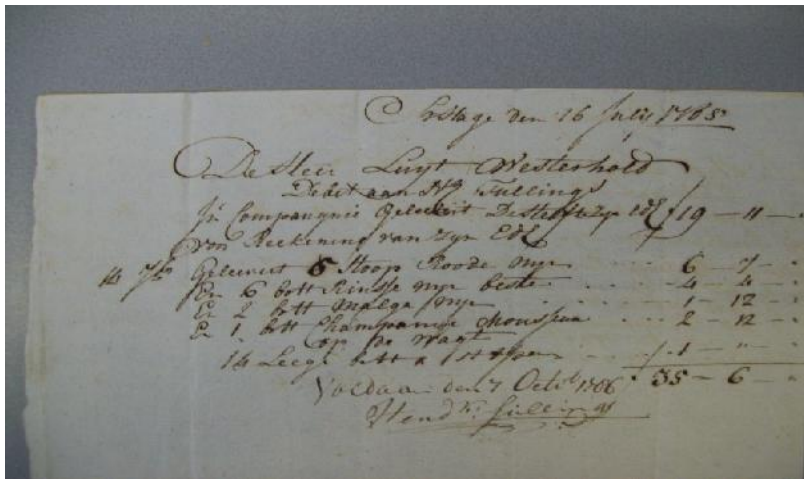 Hage den 16 Julij 1785
De Heer Luyt Westerhold
Debet aan Hk Tullings
In Compangnie Geleevert De Helft zyn Edl f 19 - 11 -
voor Reekening van zyn Edl
Geleevert 6 Stoop Roode Wyn 6 - 7 -
En 6 bott Rinsse wyn beste 4 - 4 -
E 2 bott Malga Wyn 1 - 12 -
E 1 bott Champanie Mousseu 2 - 12 -
op de Wagt
14 Leege bott a 1 - " -
35 - 6 -
Voldaan den 7 Octob 1786
Hendk Tullings